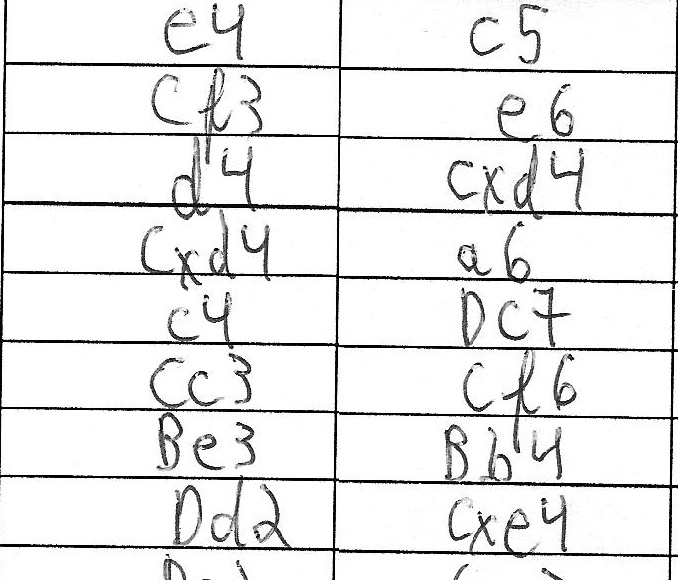 e4 c5
Cf3 e6
d4 cxd4
Cxd4 a6
c4 Dc7
Cc3 Cf6
Be3 Bb4
Dd2 Cxe4